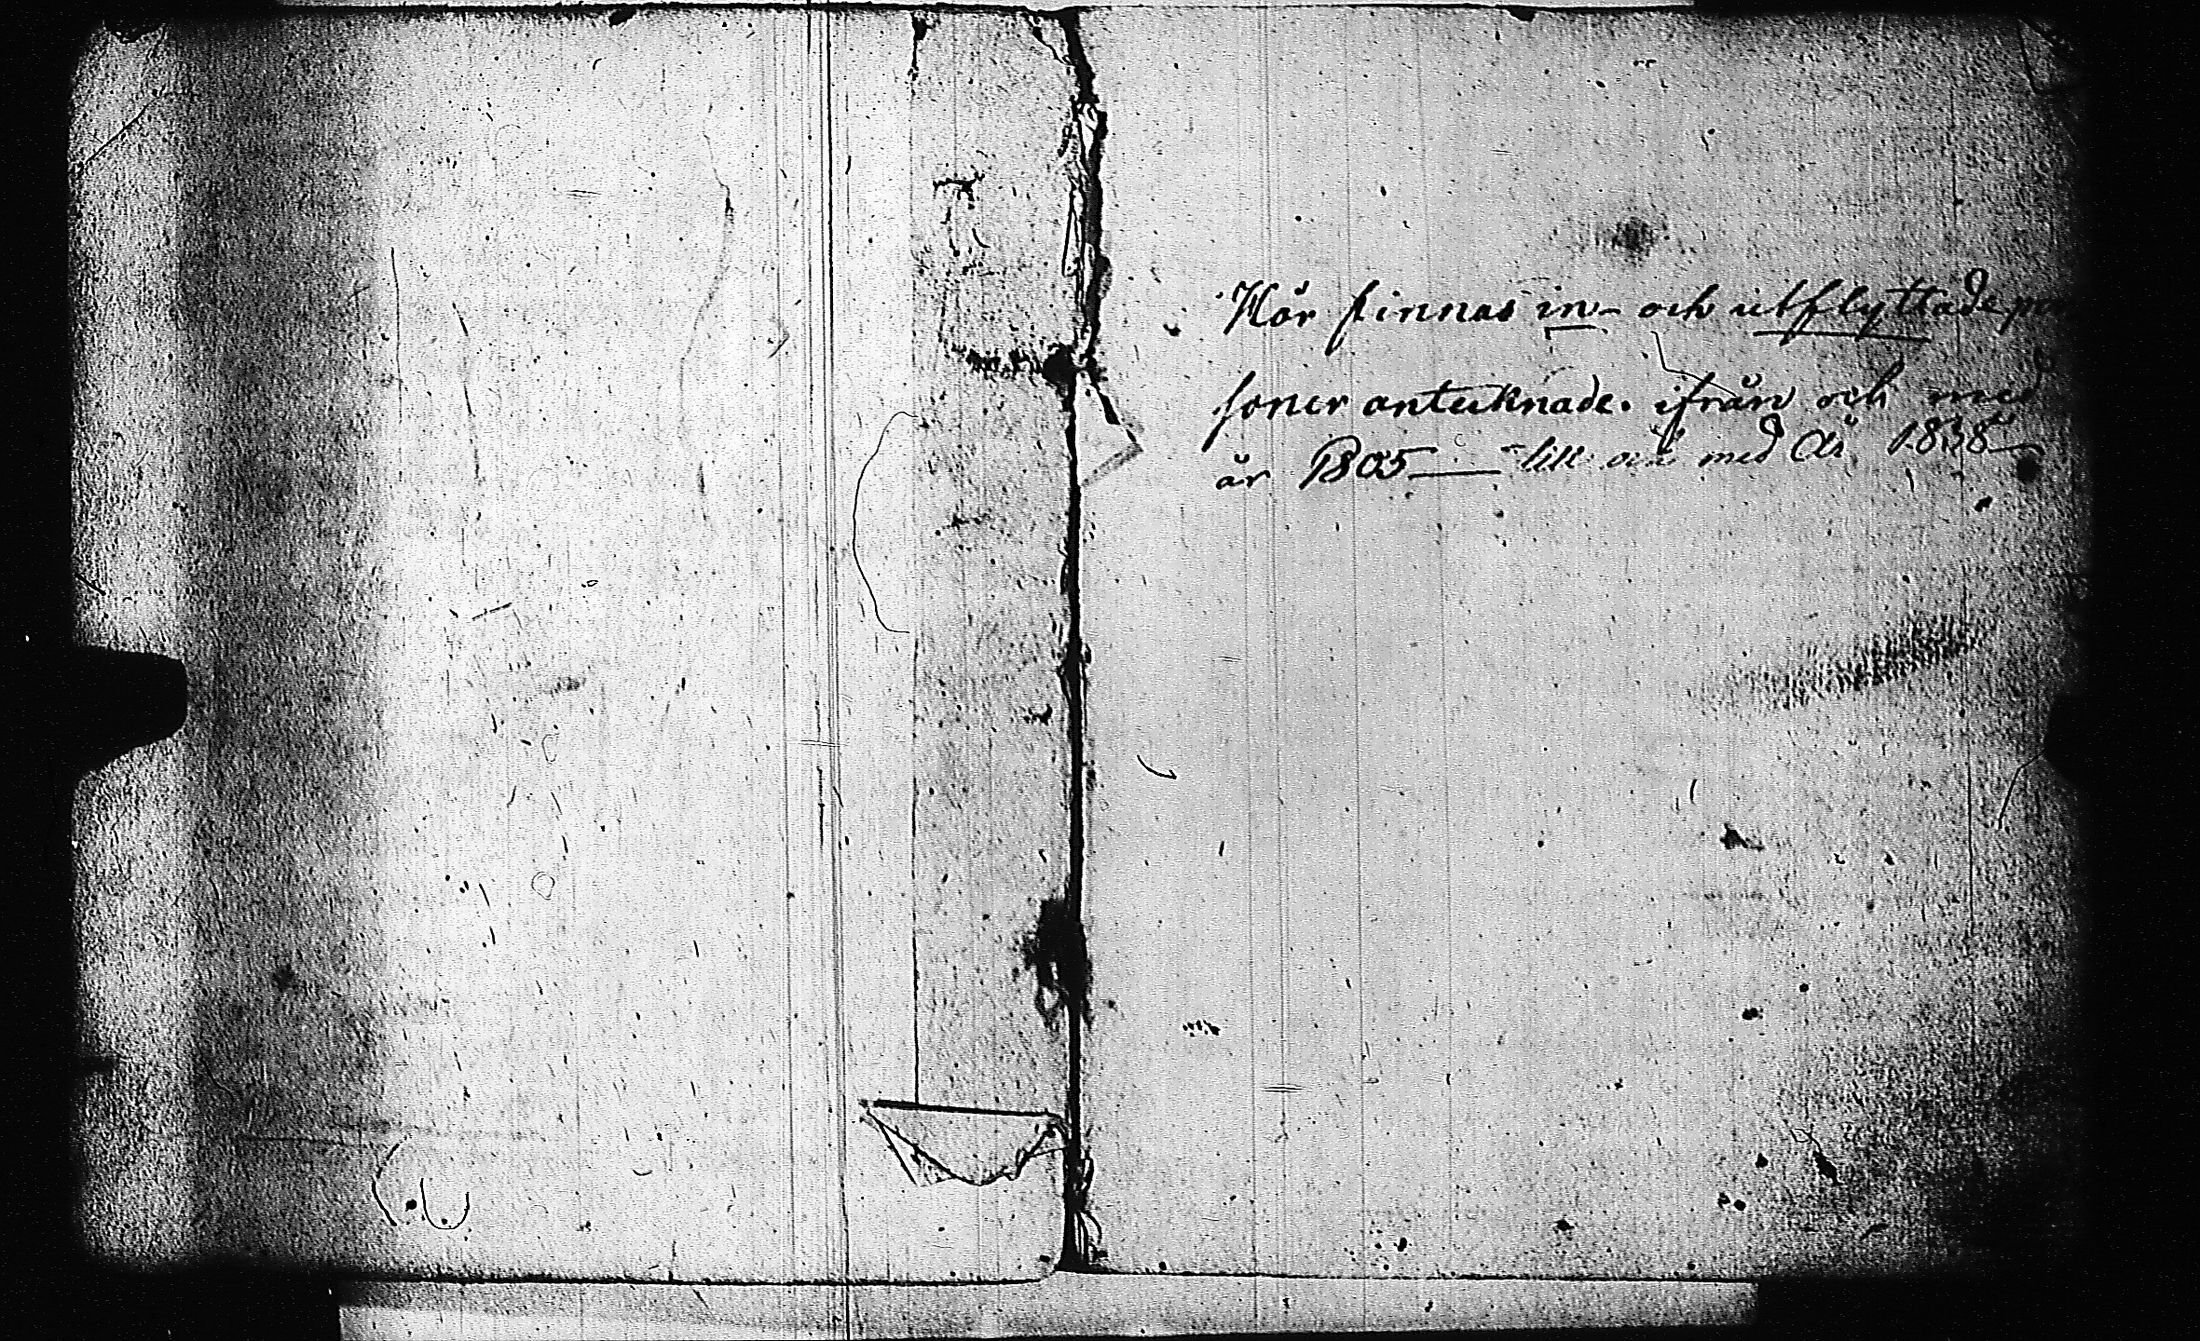 Här finnas in- och utflyttade per
soner antecknade. ifrån och med
år 1805 — till och med År 1838